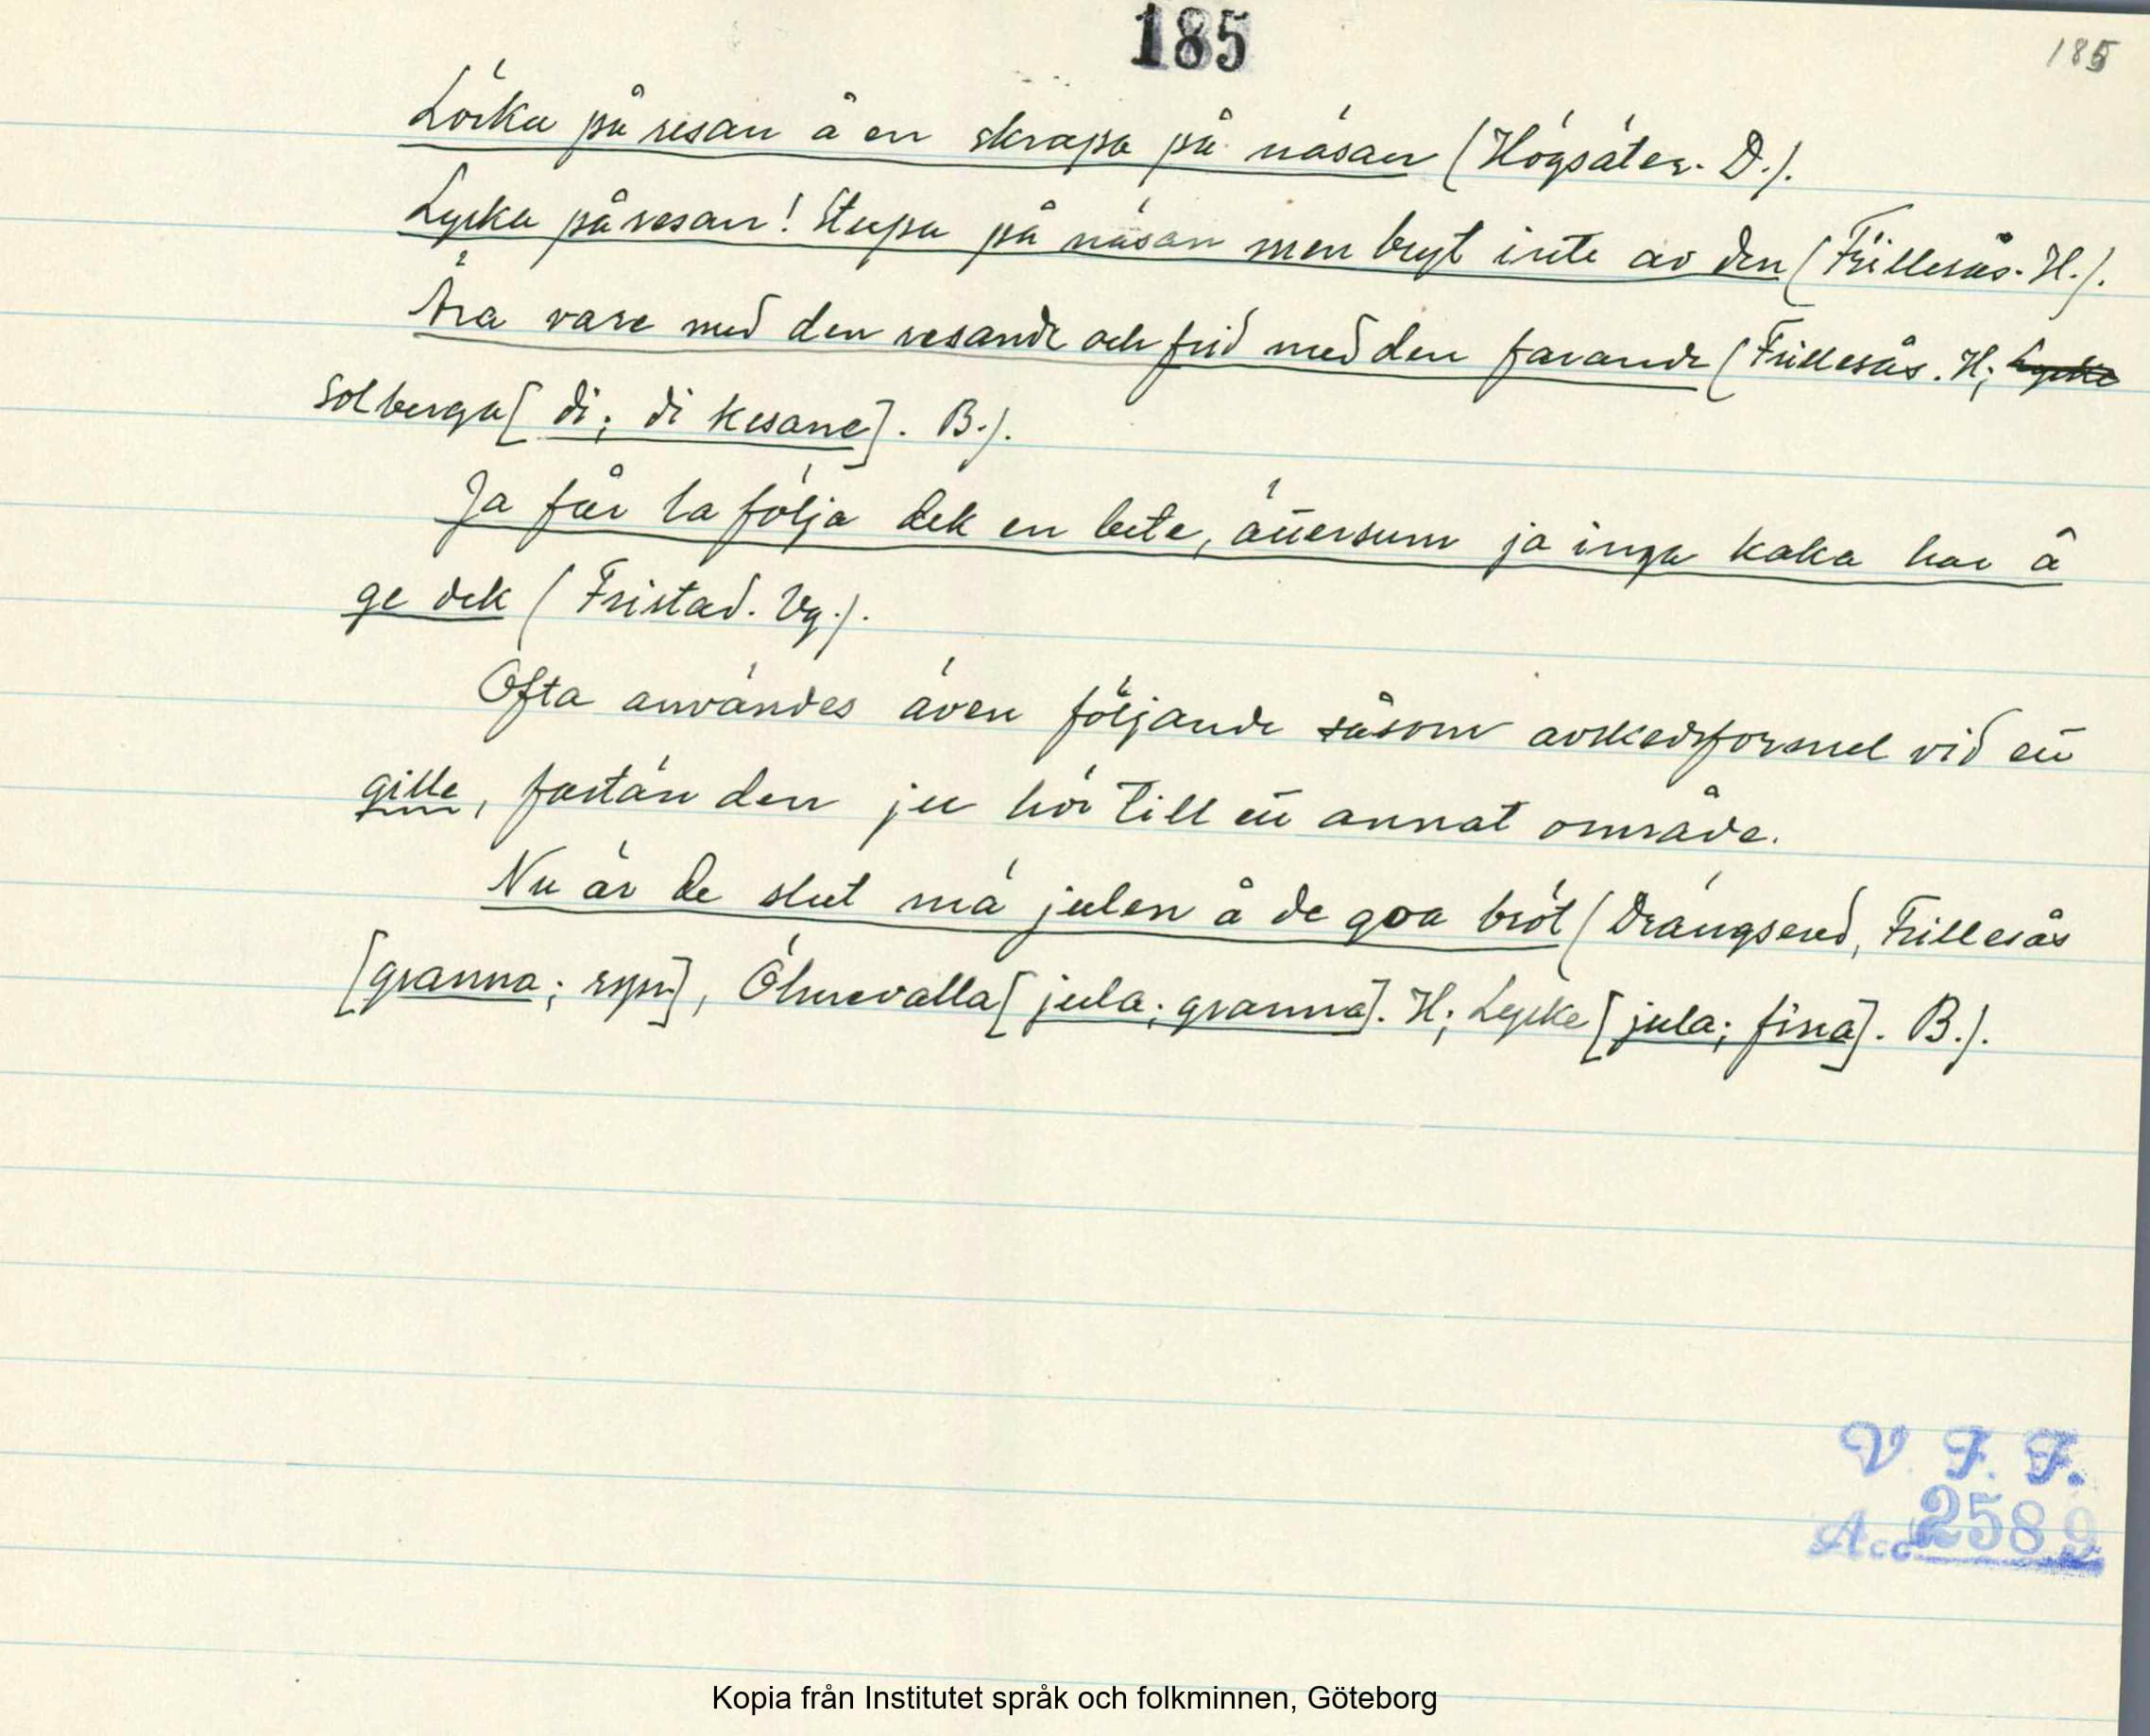 185
185
Lörka på resan å en skrapa på näsan (Högsäter. D.).
Lycka på resan! Stupa på näsan men bryt inte av den (Frillesås. H.).
Ära vare med den resande och frid med den farande (Frillesås. H; Lycke
Solberga [di; di kesane]. B.).
Ja får la följa dek en bete, ättersum ja inga kaka har å
ge dek (Fristad. Vg.).
Ofta användes även följande såsom avskedsformel vid ett
gille, fastän den ju hör till ett annat område.
Nu är de slut mä julen å de goa bröt (Drängsered, Frillesås
[granna;], Ölmevalla [jula; granna]. H; Lycke [jula; fina]. B.).
V. F. F.
Acc 2589
Kopia från Institutet språk och folkminnen, Göteborg